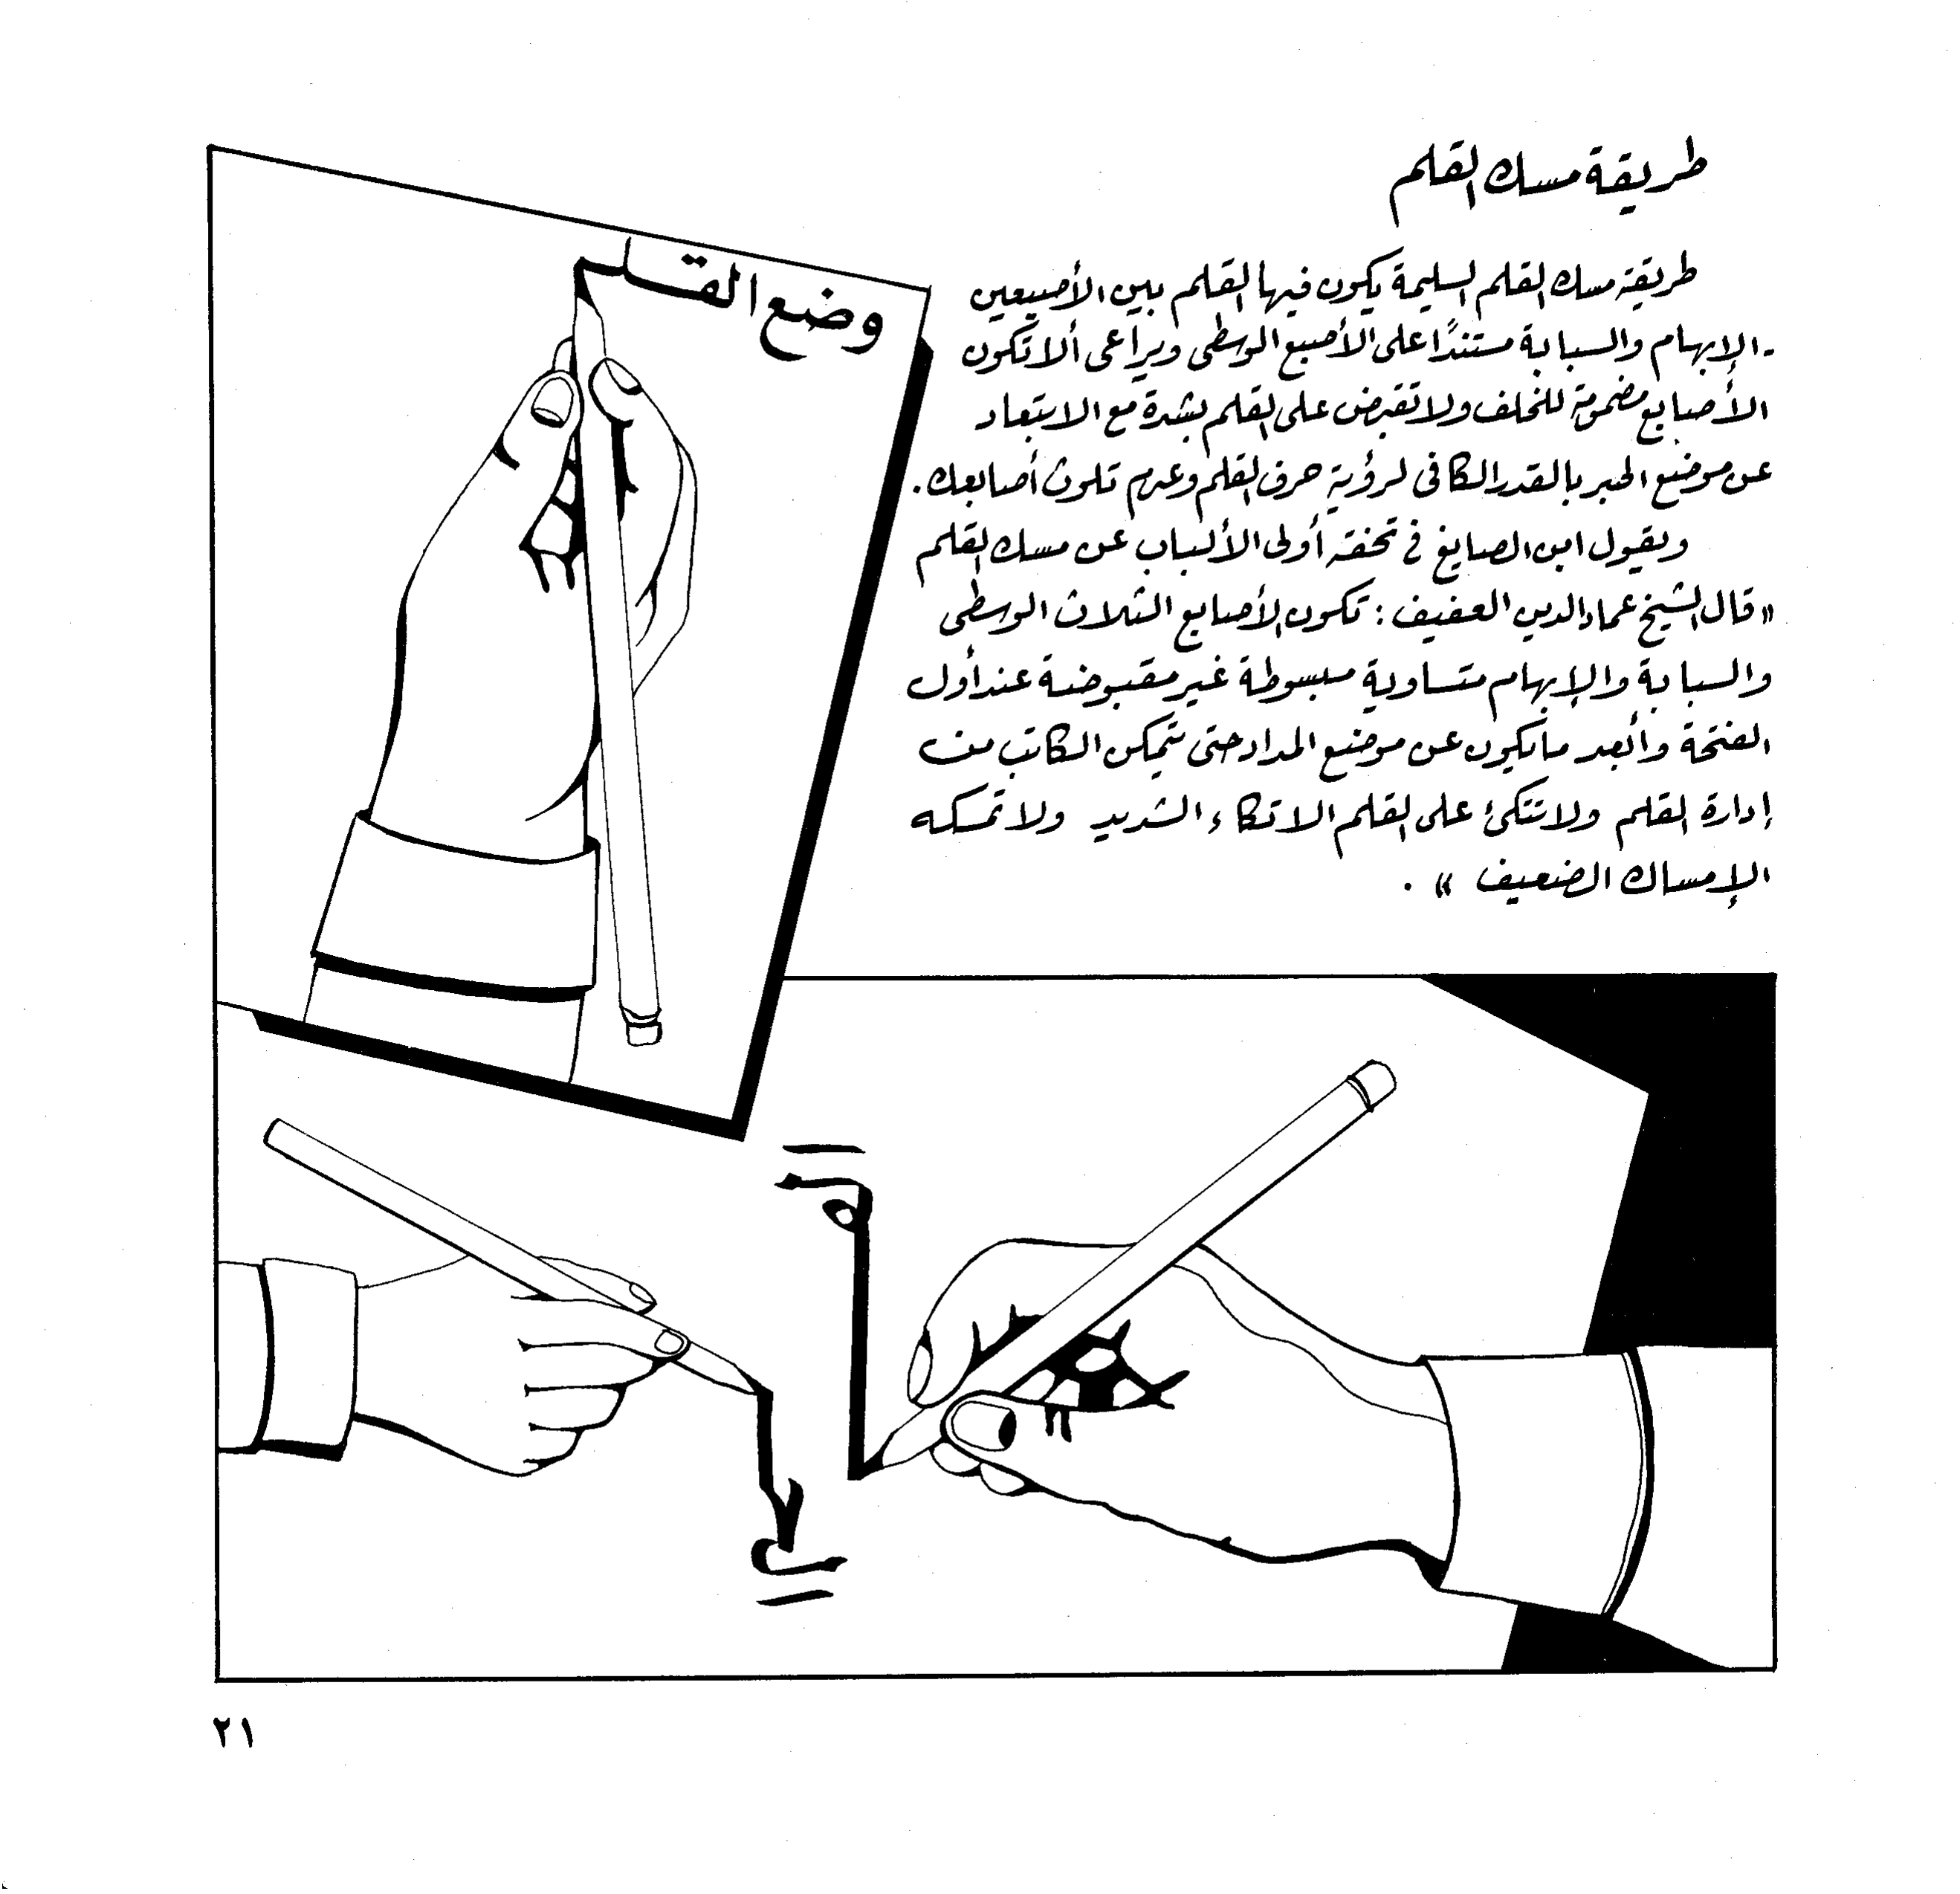 طريقة مسك القلم
طريقة مسك القلم السليمة يكون فيها القلم بين الأصبعين
الإبهام والسبابة مستنداً على الأصبع الوسطى ويراعى ألا تكون
الأصابع مضمومة للخلف ولا تقبض على القلم بشدة مع الابتعاد
عن موضع الحبر بالقدر الكافى لرؤية حرف القلم وعدم تلوث أصابعك.
ويقول ابن الصايغ فى تحفة أولى الألباب عن مسك القلم
«قال الشيخ عماد الدين العفيف: تكون الأصابع الثلاث الوسطى
والسبابة والإبهام متساوية مبسوطة غير مقبوضة عند أول
الفتحة وأبعد ما يكون عن موضع المداد حتى يتمكن الكاتب من
إدارة القلم ولا تتكئ على القلم الاتكاء الشديد ولا تمسكه
الإمساك الضعيف».
وضع القلم
٢١